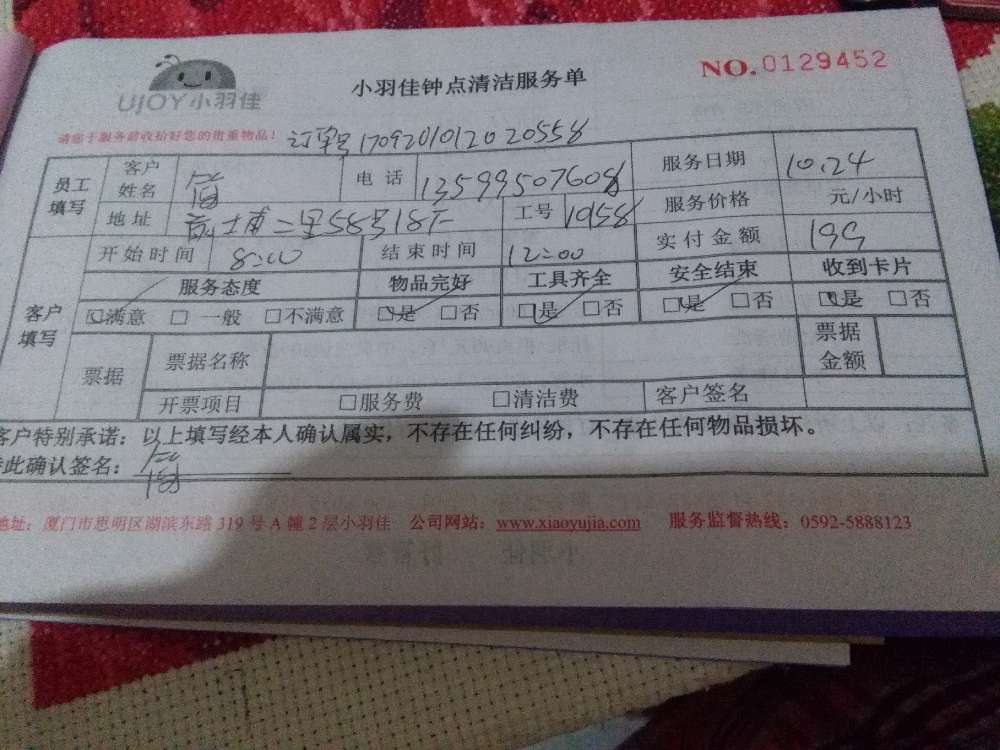 UJOY小羽佳
小羽佳钟点清洁服务单
NO.0129452
请您于服务前收拾好您的贵重物品！ 订单号1709201012020558
员工填写 客户姓名 电话 13599507608 服务日期 10.24
地址 二里58号18 工号 1058 服务价格 元/小时
开始时间 8:00 结束时间 12:00 实付金额 199
客户填写 服务态度 物品完好 工具齐全 安全结束 收到卡片
☑满意 □ 一般 □不满意 ☑是 □否 ☑是 □否 ☑是 □否 ☑是 □否
票据 票据名称 票据金额
开票项目 □服务费 □清洁费 客户签名
客户特别承诺：以上填写经本人确认属实，不存在任何纠纷，不存在任何物品损坏。
此确认签名：
地址：厦门市思明区湖滨东路 319 号 A 幢 2 层小羽佳 公司网站：www.xiaoyujia.com 服务监督热线：0592-5888123